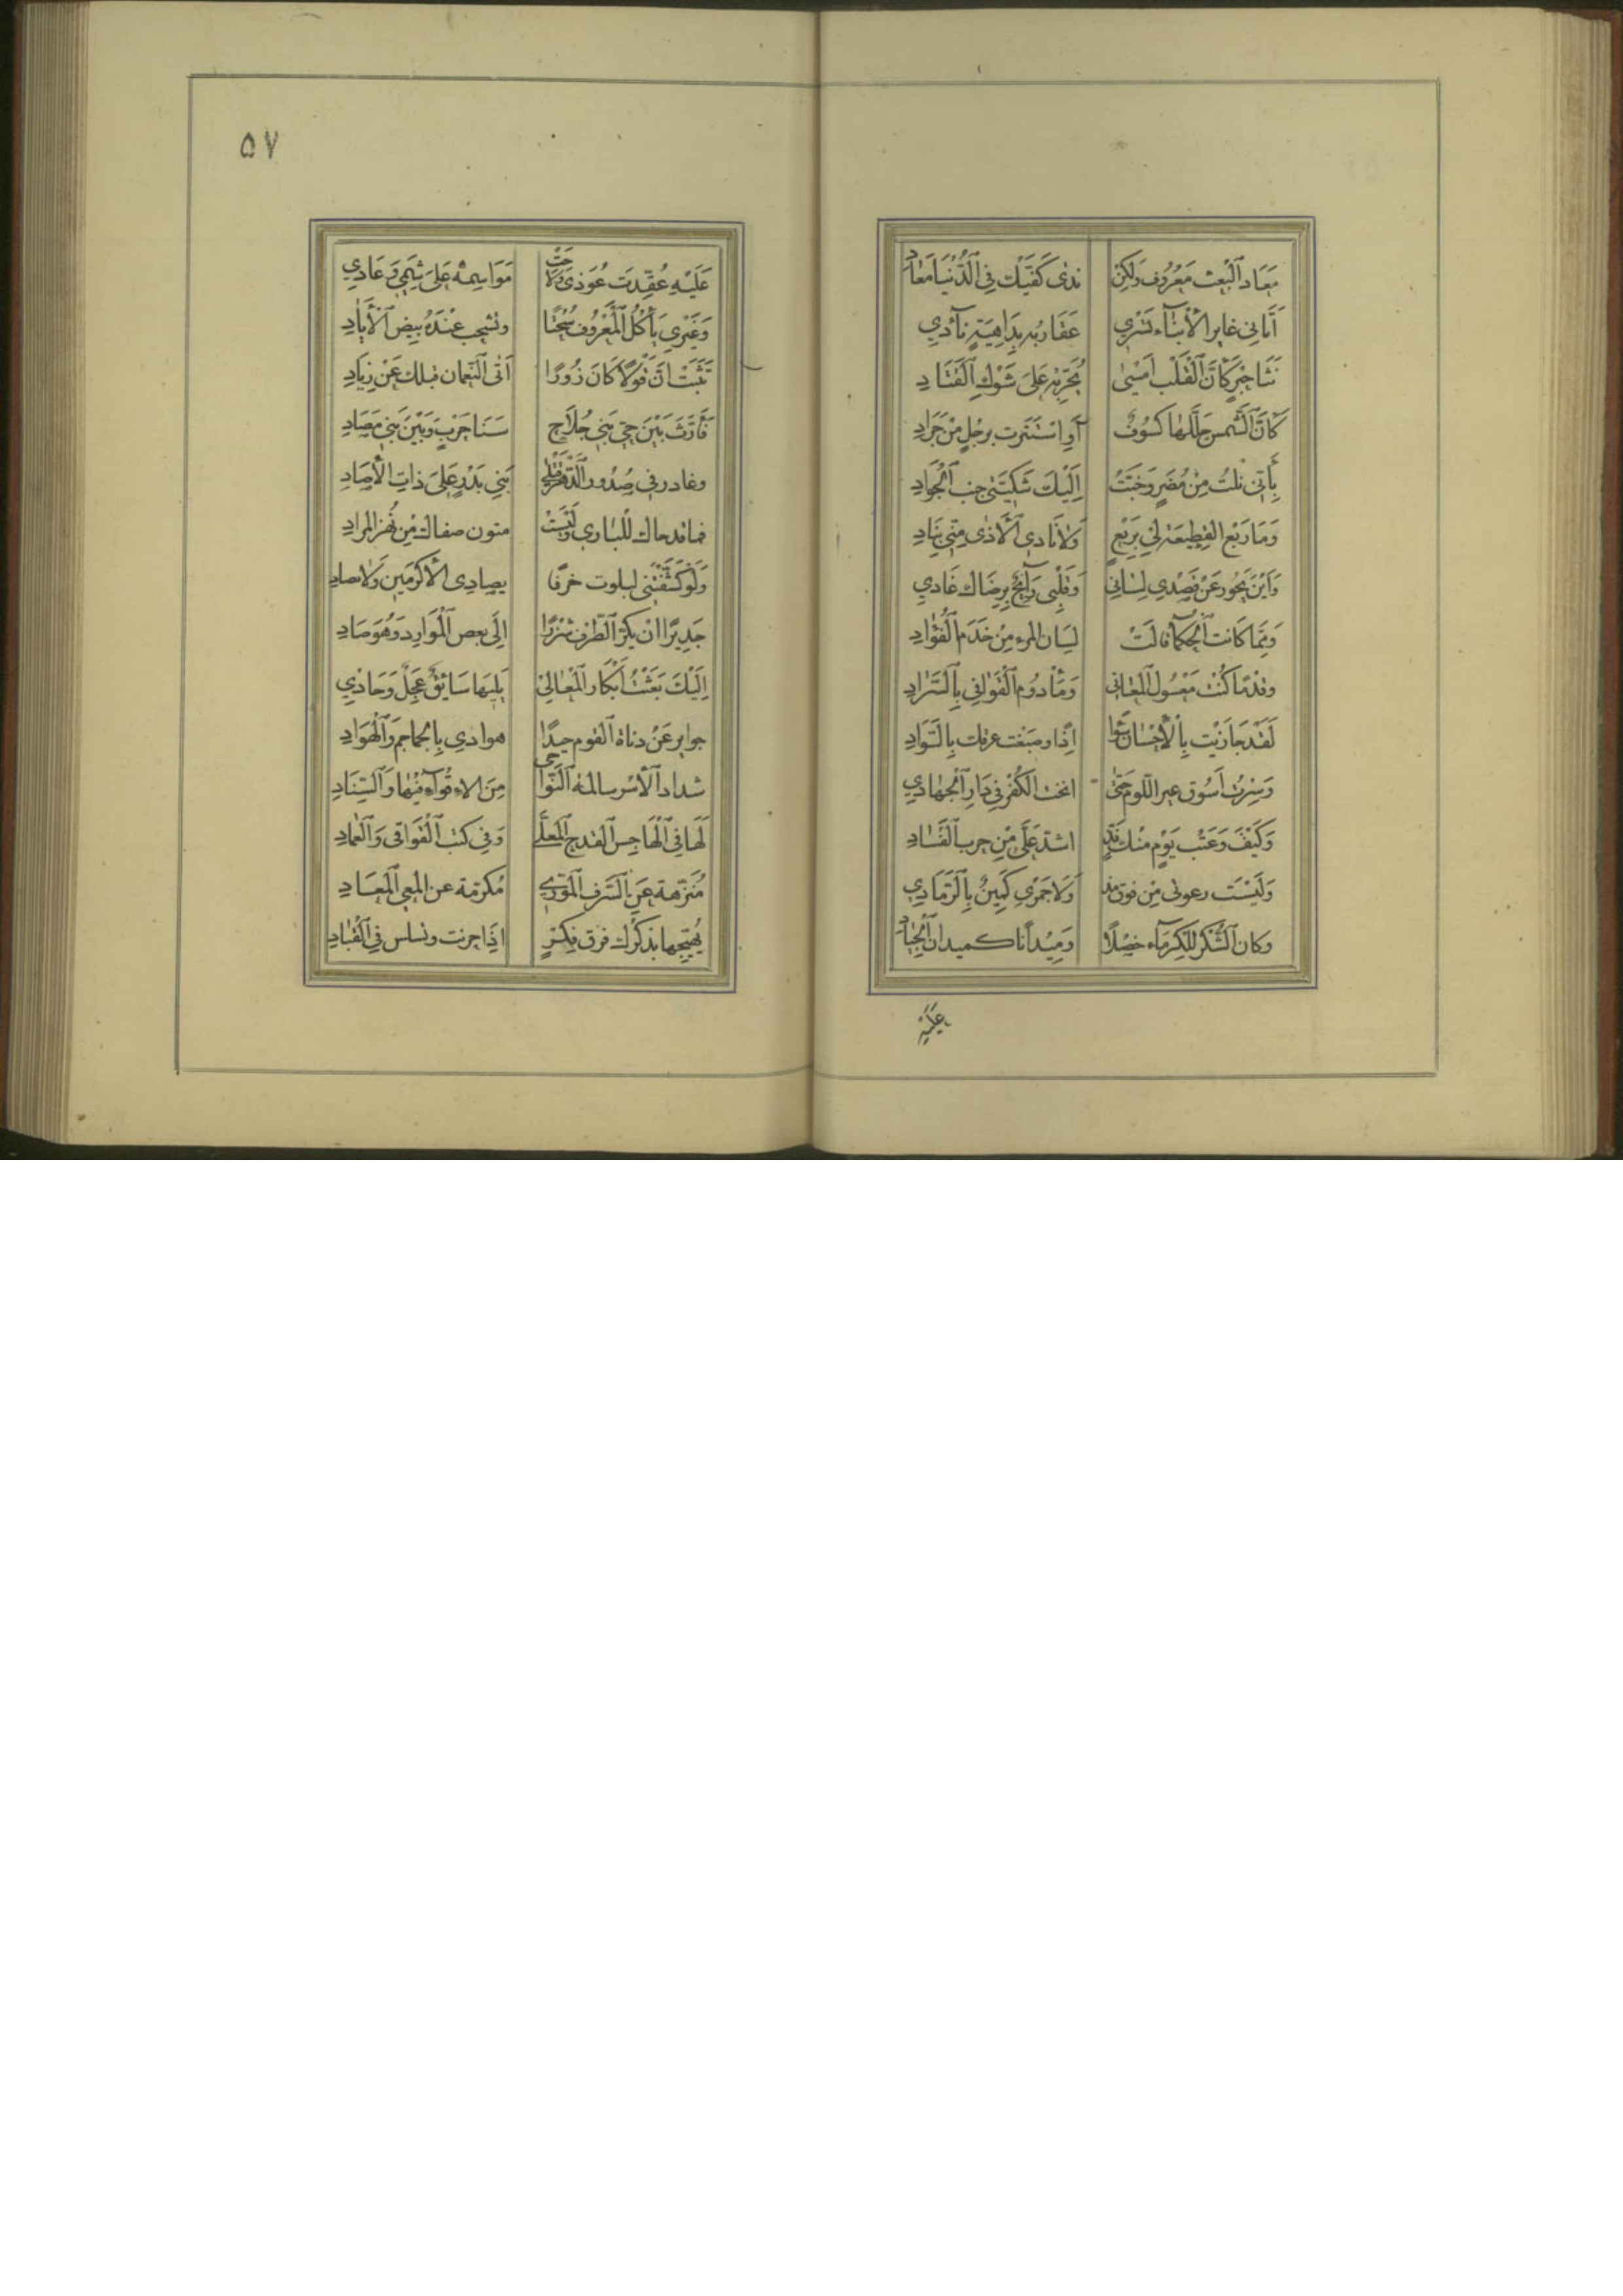 مَعَاد ٱلْبَعْث مَعْرُوف وَلكِن نَدٰى كَفَّيْك فِي ٱلدُّنْيَا مَعَاد
أَتَانِي غاير الأنبَآء تَسْرِي عَقَاربُه بِدَاهِيَةٍ نآدِي
نَثَا خبَر كَاَنَّ ٱلْقَلْب اَمْسىٰ يُجَرّ بِهِ عَلىَ شَوْكِ ٱلْقَتَادِ
كَاَنَّ ٱلشَّمس جَلَّلهَا كسُوُفٌ اَوِ اسْتَتَرت برِجْلٍ مِنْ جَرَادِ
بِأَنّي نلتُ مِنْ مُضَرٍ وَخَبَّتْ اِلَيْكَ شَكِيَّتىٰ خبب ٱلْجَوَادِ
وَمَا رَبْع القطِيعَة لِي بِرَبْعٍ وَلَا نَادِي ٱلْاَذىٰ مِنّي بِنَادِ
وَاَيْنَ يَجُور عَنْ قَصْدِي لِسَانِي وَقَلْبِى رَآئِحٌ بِرِضَاك غَادِي
وَمِمَّا كَانت ٱلْحُكمآء قالَتْ لِسَان المرء مِنْ خَدَم ٱلْفُؤَادِ
وقدْمًا كُنْت مَعْسُول ٱلْمعَانِي وَمَأْدُوم ٱلْقَوَافي بِٱلسَّدَادِ
لَقَدْ جَازَيْت بِاْلأِحْسَان سُوٓأً اِذًا وصَبَغت عرفك بِالسَّوَادِ
وَسِرْت أَسُوق عير اللّوم حَتىّٰ انخت الكُفر في دَارِ ٱلْجِهَادِي
وَكَيْفَ وَعَتْب يَوْمٍ مِنْك فَذٍّ اشدّ عَلَيَّ مِن حرب ٱلْفَسَادِ
وَلَيْسَت رعوتى مِن فوق مذ وَلَا جَمْرِي كَمِينٌ بِٱلرَّمَادِي
وكان ٱلشُّكر لِلْكِرَمَآء خصْلًا وَمَيْدَانا كميدان ٱلْجِيَاد
عَلَيْهِ
٥٧
عَلَيْهِ عُقِدَت عُوَذىِ وَلَاحَتْ مَوَاسِمُه عَلىَ شِيَمِي وَعَادِي
وَغَيْرِي يَأْكُل ٱلْمَعْرُوف سُحْتًا وتَشحب عِنْدَهُ بِيض ٱلْأَيَادِ
تَثَبَّتْ اِنّ قَوْلًا كَانَ زُورًا اَتٰى ٱلنّعمان قبلك عَنْ زِيَادِ
فَأَرَّثَ بَيْنَ حَيّ بَنِي جُلَاحٍ سَنَا حَرْبٍ وَبَيْنَ بَنِي مَصَادِ
وغادر في صُدُور ٱلدَّهْر قَتْلى بَنِي بَدْرٍ عَلىَ ذَاتِ الْأَصَادِ
فما قدحاك للبَارِي وَلَيْسَتْ متون صفاك مِن نُهَز المرادِ
وَلَوْ كَشَّفْتَنِي لبلوت خرقا يصادِى الْأَكْرَمَيِن وَلَا يصادِ
جَدِيرًا انْ يكِرّ ٱلطّرْف شَزْرًا اِلَى بعض ٱلْمَوَارِد وَهُوَ صَادِ
اِلَيْكَ بَعَثْتُ أَبْكَار ٱلْمَعَالِي يَلِيهَا سَايِقٌ عَجِلٌ وَحَادِي
جواير عَنْ دناة ٱلقوم حيدًا هوادي بِالجماجم وَٱلْهَوَادِ
شداد ٱلاْسْر سالمة ٱلنَّوَاحى مِنَ الاقوٓاءِ فيهٰا وَٱلسّنِادِ
لَهَا فيِ ٱلْهَاجِس ٱلقدح ٱلْمُعَلّى وَفِي كتب ٱلْقَوَافى وَٱلْعِمادِ
مُنَزَّهة عَنِ ٱلسَّرف ٱلْمُوَرّى مُكَرّمَة عن المعنى ٱلْمُعَادِ
يُهَيِّجها بِذكرك فرق فِكرٍ اِذَا حرنت وتسلس في ٱلْقِيَادِ